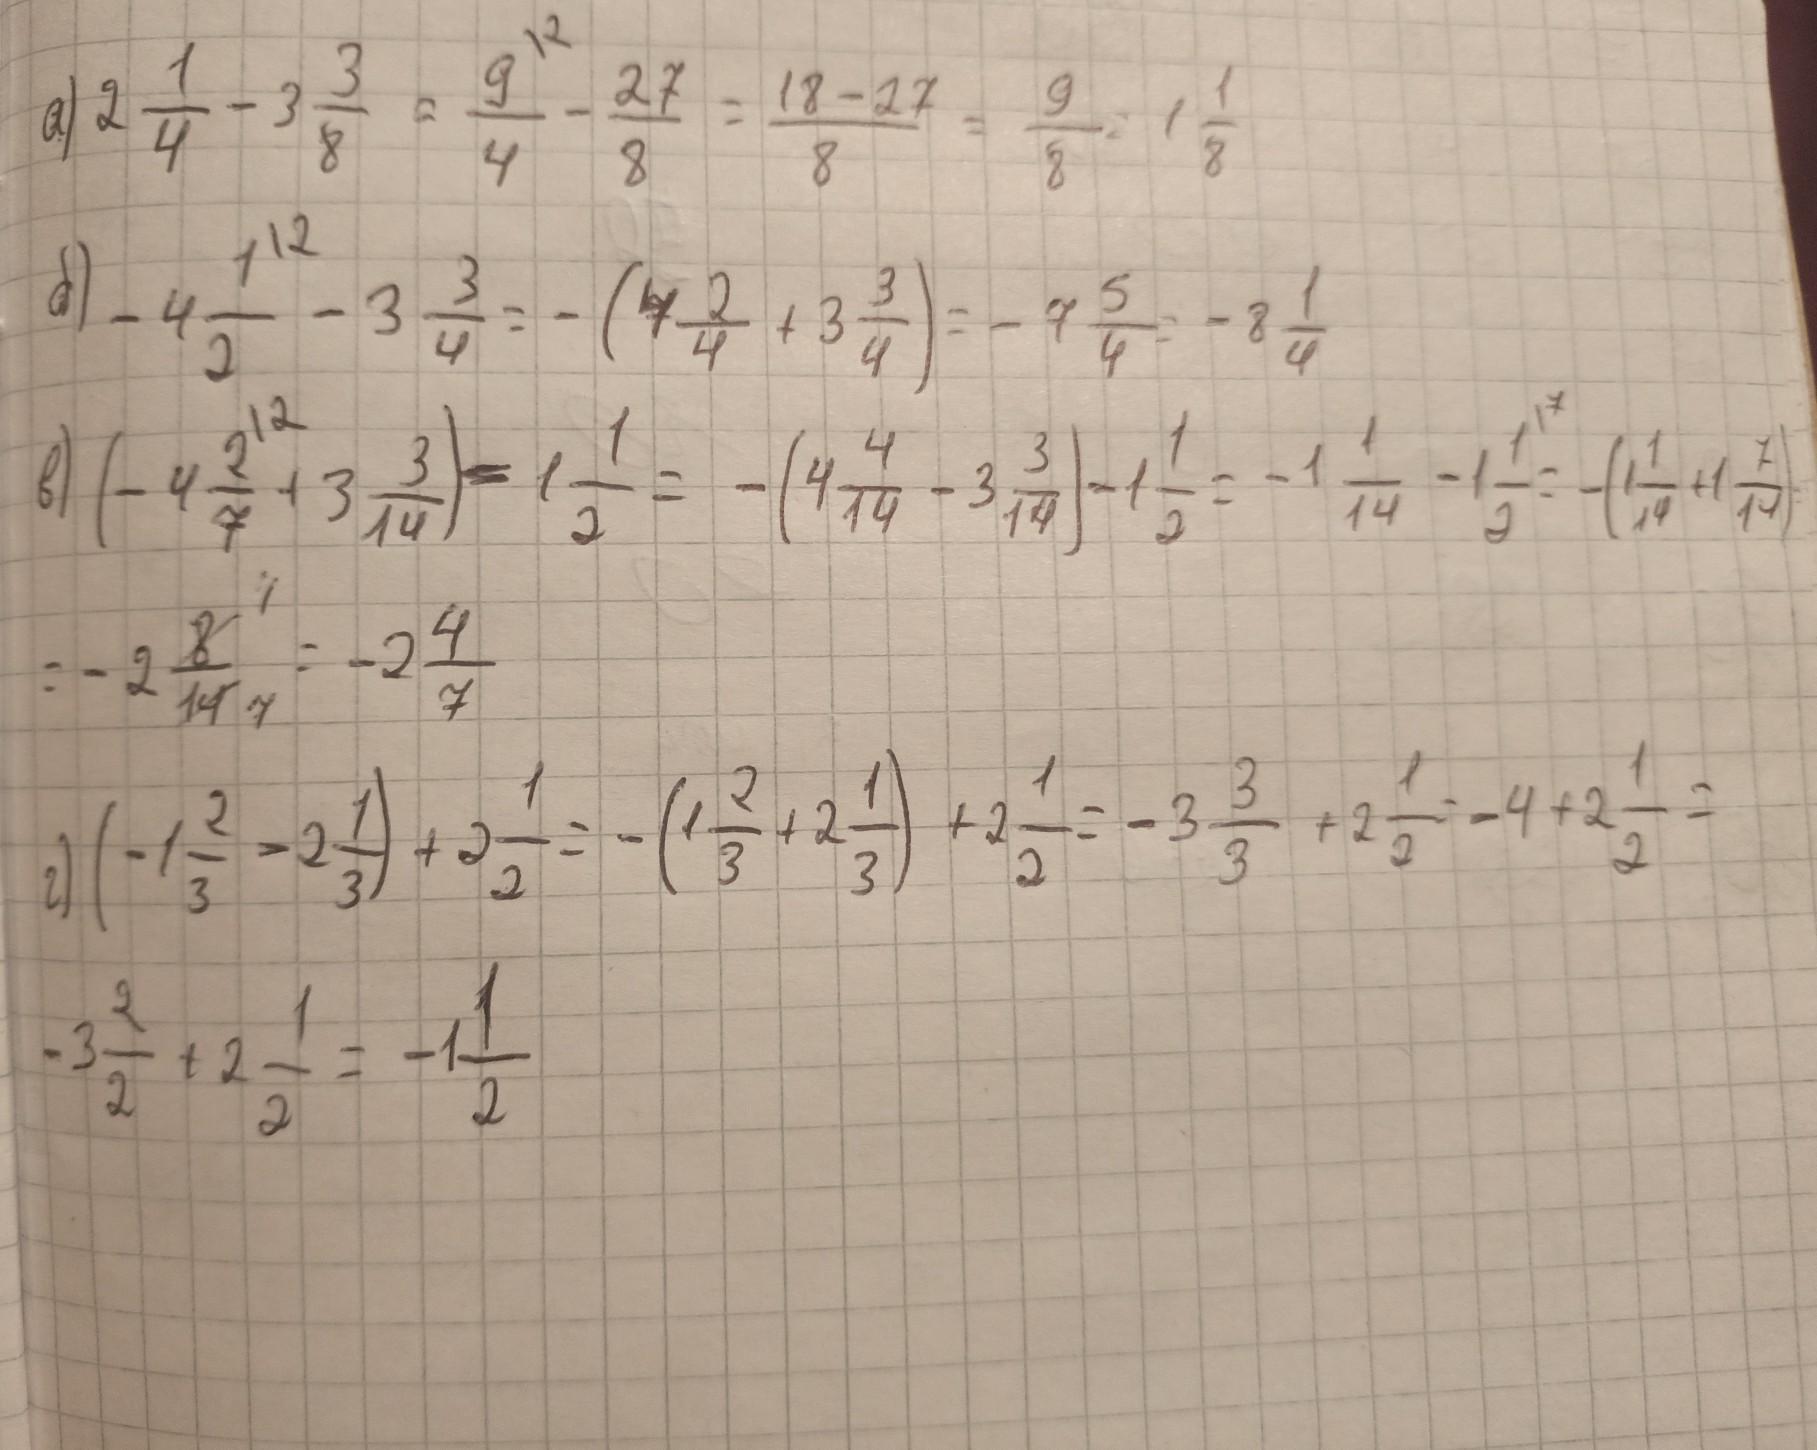 а) 2 1/4 - 3 3/8 = 9/4 |2 - 27/8 = (18 - 27)/8 = 9/8 = 1 1/8
б) - 4 1/2 |2 - 3 3/4 = - (4 2/4 + 3 3/4) = - 7 5/4 = - 8 1/4
в) (- 4 2/7 |2 + 3 3/14) - 1 1/2 = - (4 4/14 - 3 3/14) - 1 1/2 = - 1 1/14 - 1 1/2 |7 = - (1 1/14 + 1 7/14)
= - 2 8/14 7 = - 2 4/7
г) (- 1 2/3 - 2 1/3) + 2 1/2 = - (1 2/3 + 2 1/3) + 2 1/2 = - 3 3/3 + 2 1/2 = - 4 + 2 1/2 =
- 3 2/2 + 2 1/2 = - 1 1/2